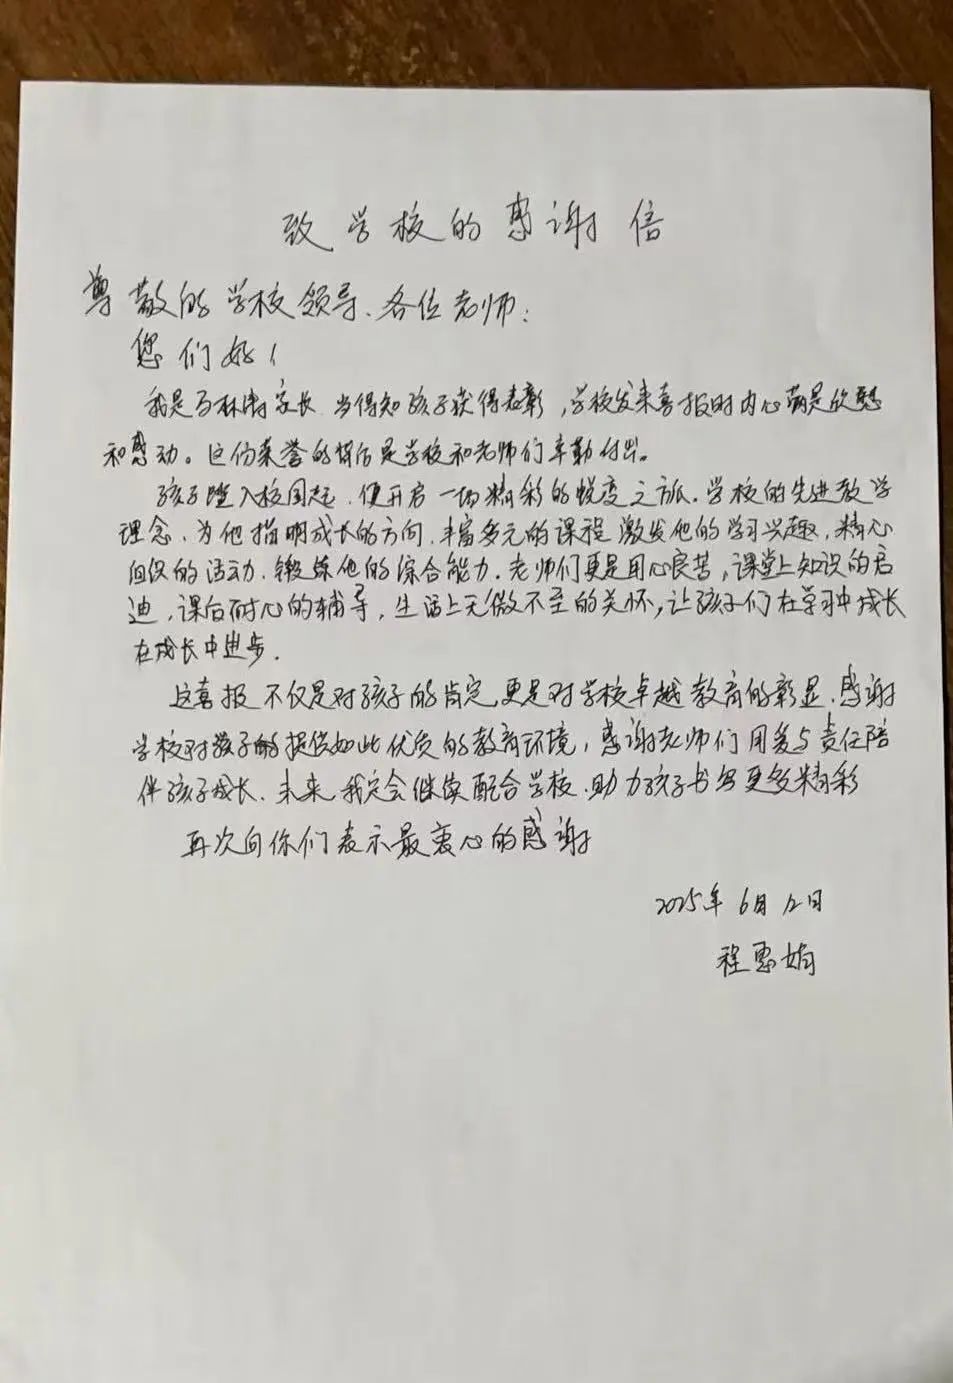 致学校的感谢信
尊敬的学校领导、各位老师:
您们好!
我是 家长 当得知孩子获得表彰,学校发来喜报时内心满是欣慰
和感动。这份荣誉的背后是学校和老师们辛勤付出。
孩子踏入校园起、便开启一场精彩的蜕变之旅.学校的先进教学
理念、为他指明成长的方向.丰富多元的课程 激发他的学习兴趣,精心
组织的活动.锻炼他的综合能力.老师们更是用心良苦,课堂上知识的启
迪,课后耐心的辅导,生活上无微不至的关怀,让孩子们在学习中成长
在成长中进步.
这喜报 不仅是对孩子的肯定.更是对学校卓越教育的彰显.感谢
学校对孩子的提供如此优质的教育环境,感谢老师们用爱与责任陪
伴孩子成长.未来.我定会继续配合学校.助力孩子书写更多精彩
再次向你们表示最衷心的感谢
2025年6月12日
程惠娟